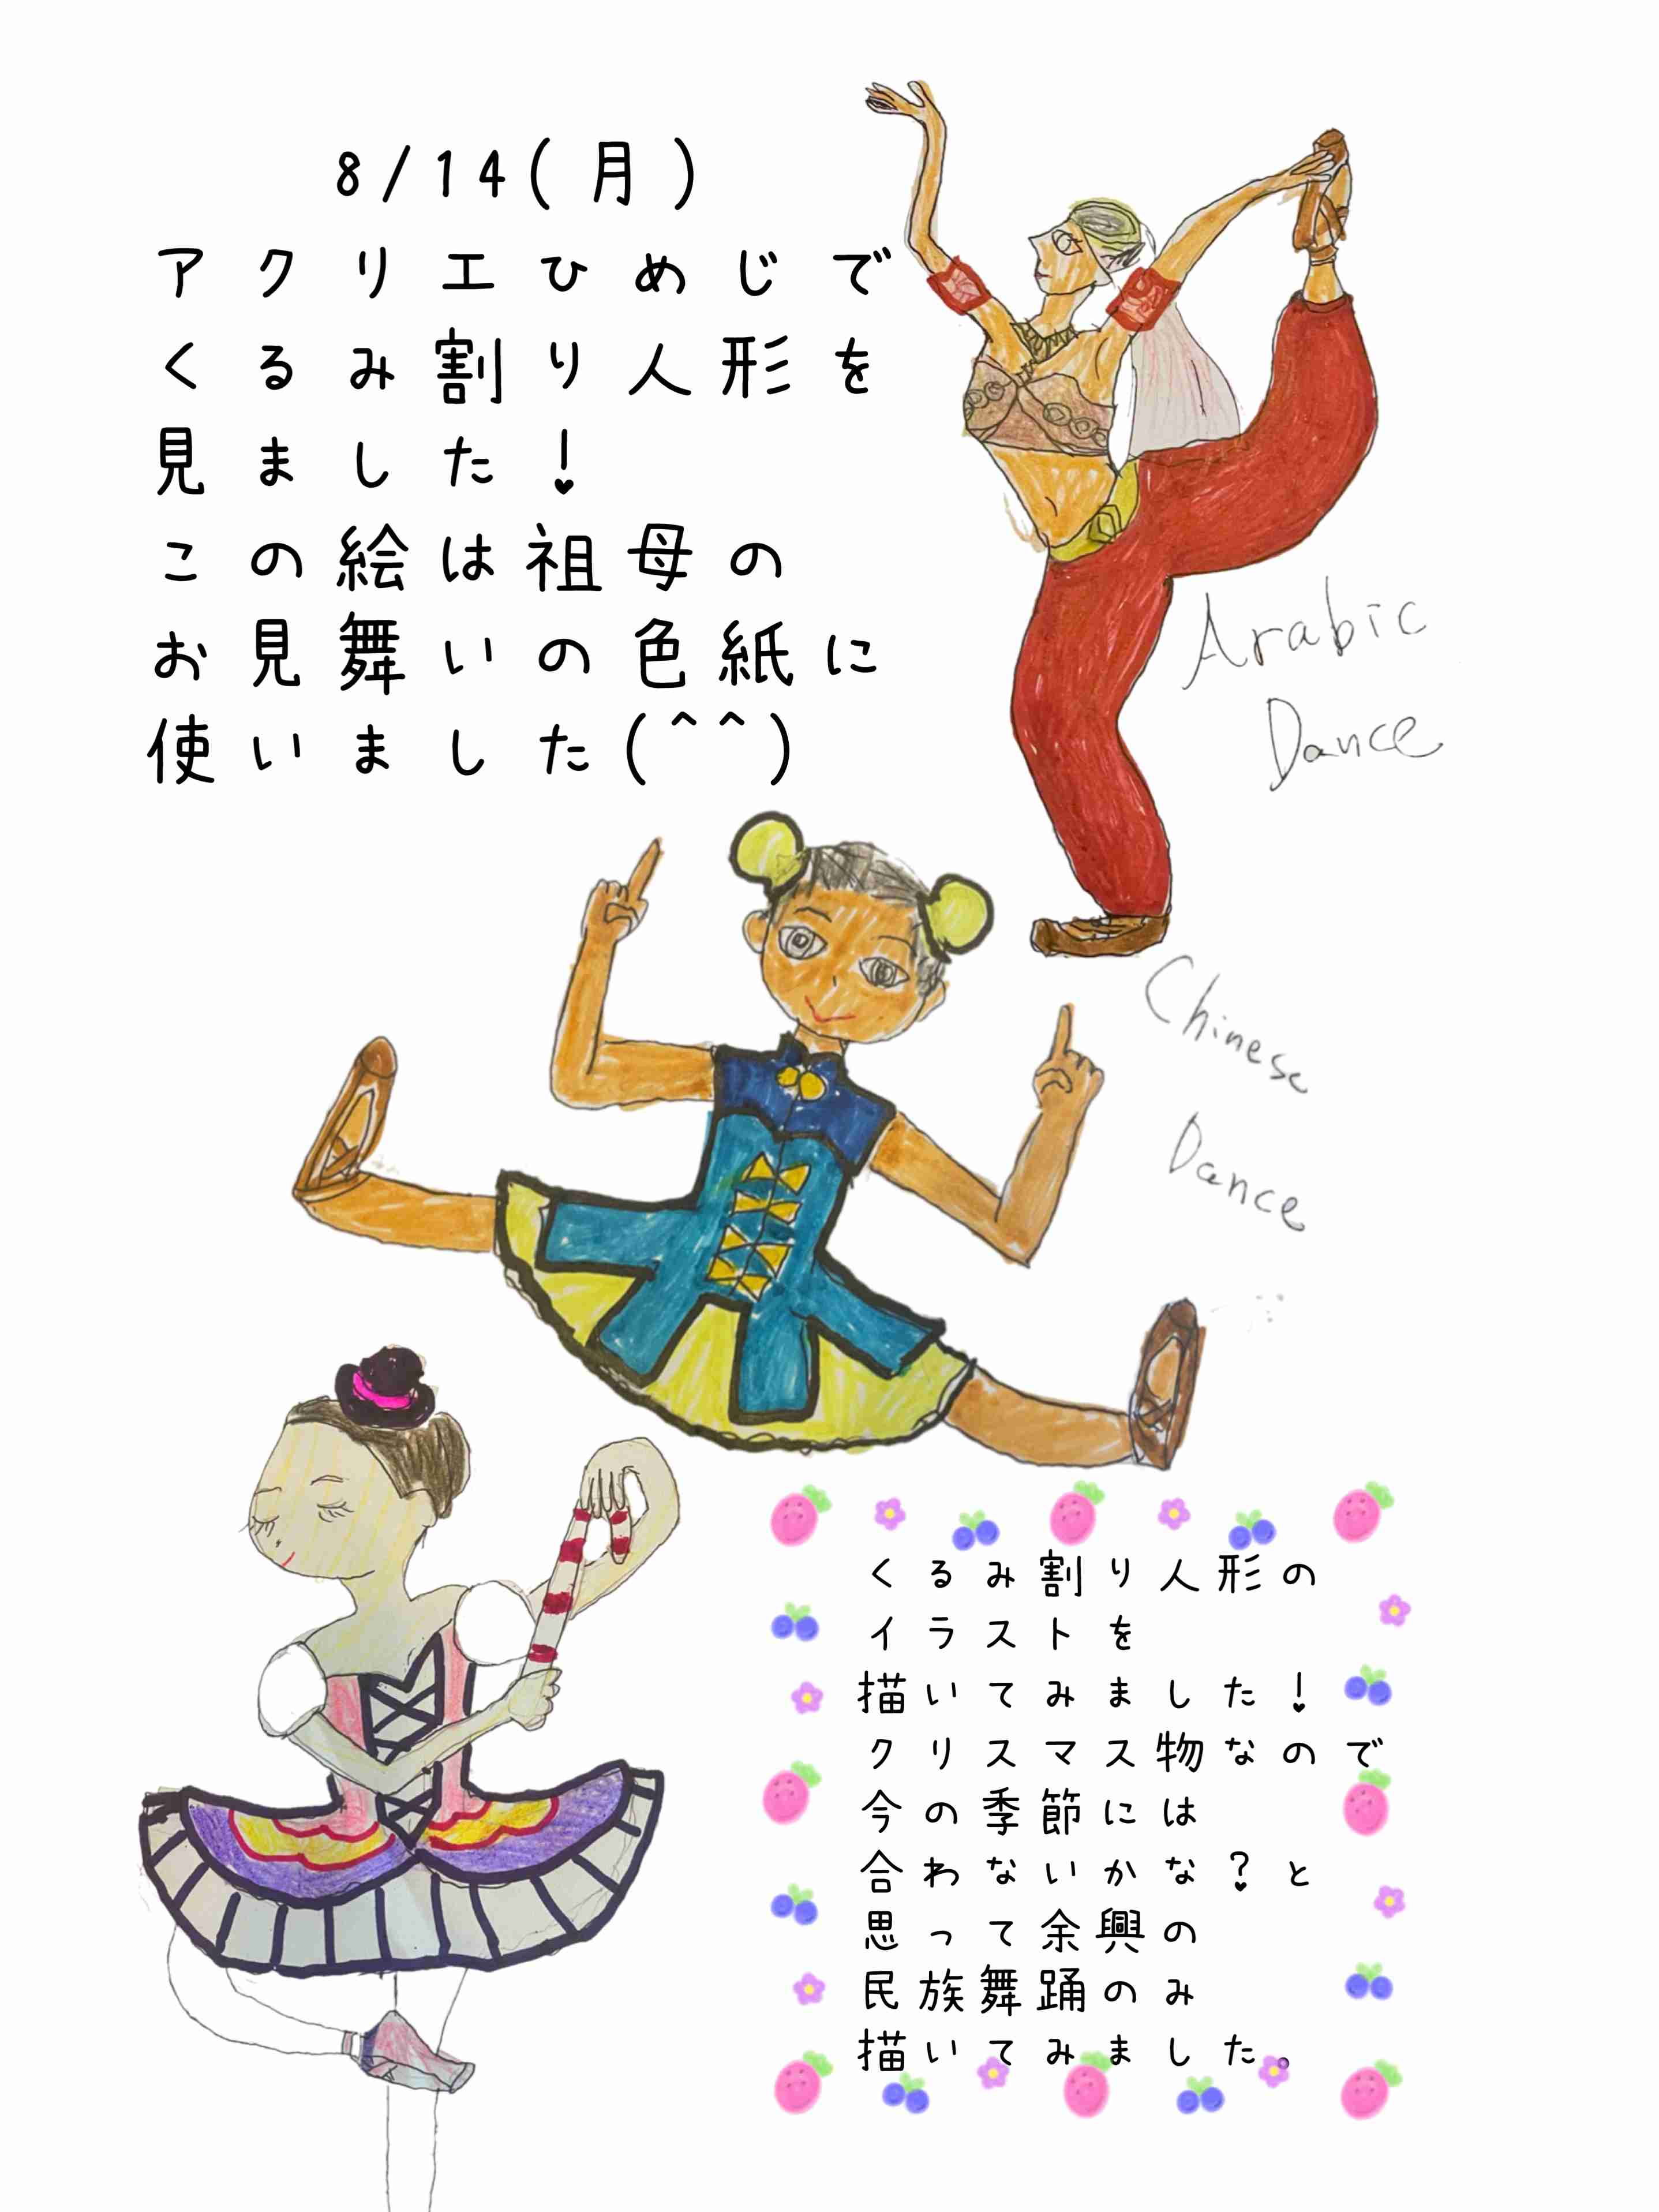 8/14(月)
アクリエひめじで
くるみ割り人形を
見ました!
この絵は祖母の
お見舞いの色紙に
使いました(^^)
Arabic
Dance
Chinese
Dance
くるみ割り人形の
イラストを
描いてみました!
クリスマス物なので
今の季節には
合わないかな?と
思って余興の
民族舞踊のみ
描いてみました。